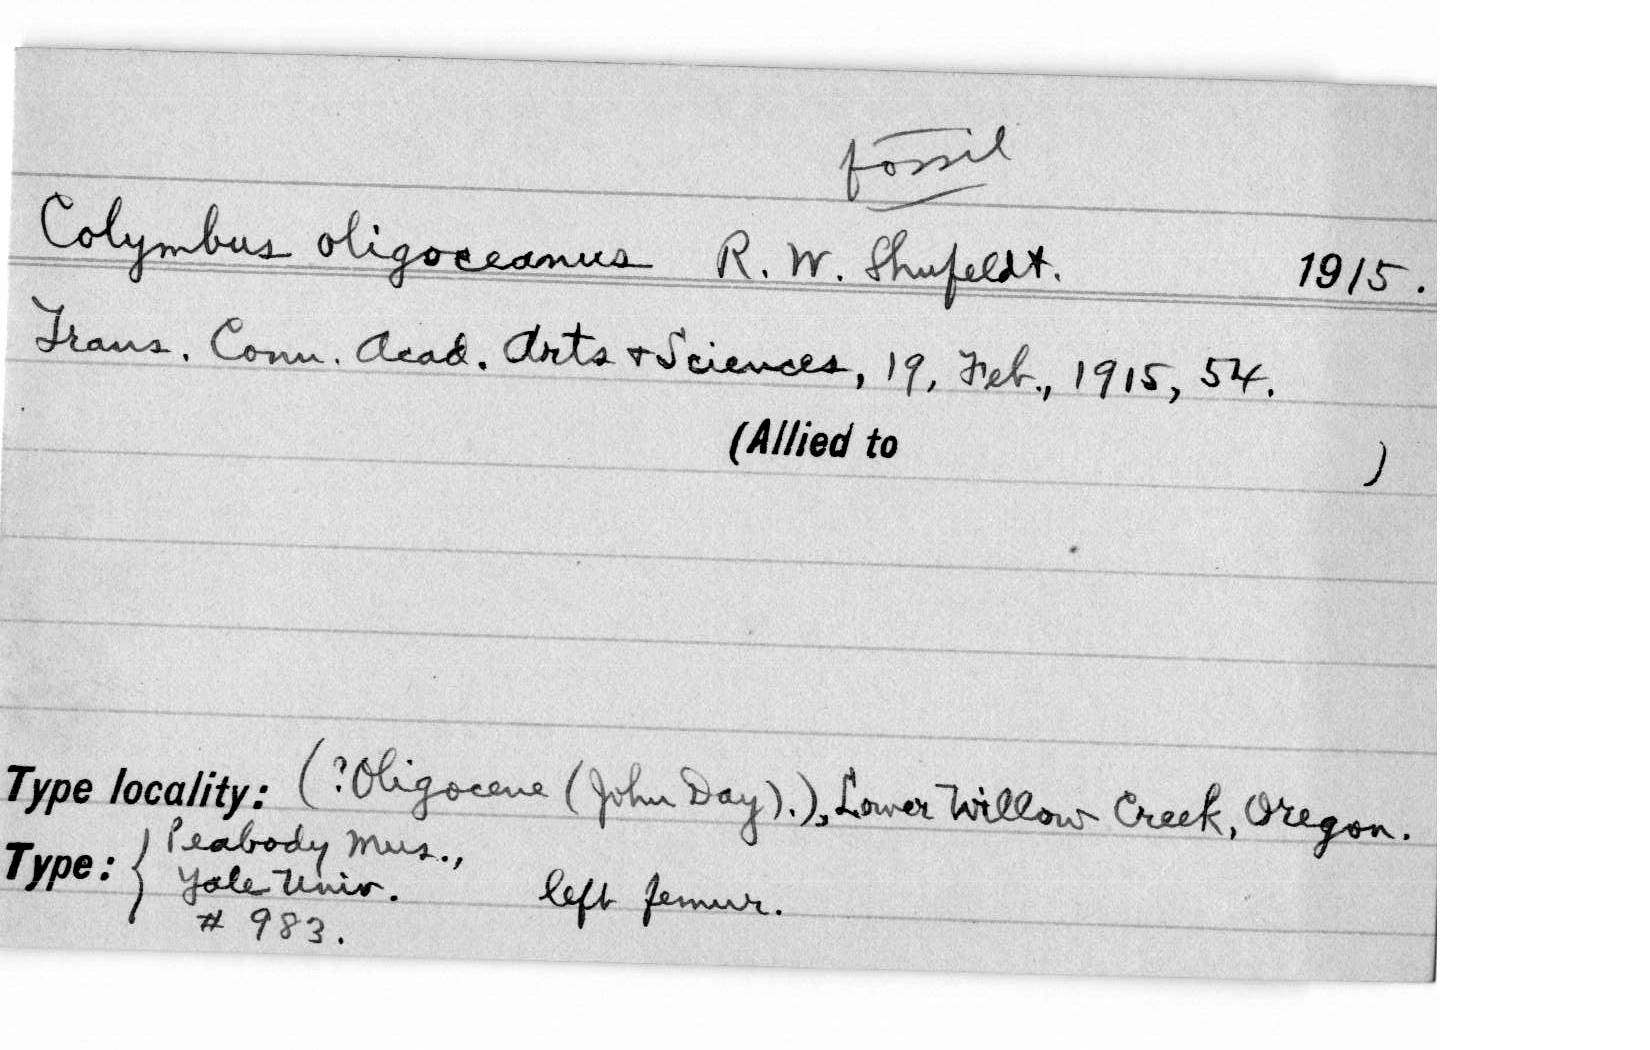 fossil
Colymbus oligoceanus R. W. Shufeldt. 1915.
Trans. Conn. Acad. Arts + Sciences, 19, Feb., 1915, 54.
(Allied to )
Type locality: (?Oligocene (John Day).), Lower Willow Creek, Oregon.
Type: { Peabody Mus.,
Yale Univ. left femur.
# 983.